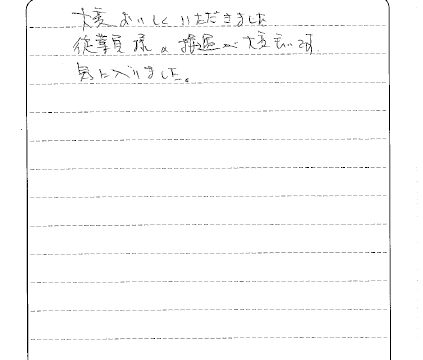 大変おいしくいただきました
従業員様の接遇が大変良い
気に入りました。